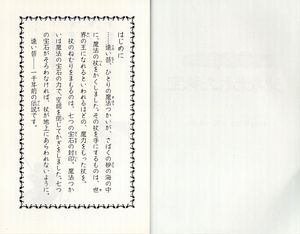 はじめに
……遠い昔、ひとりの魔法つかいが、さばくの砂の海の中
に、魔法の杖をかくしました。その杖を手にするものは、世
界の王になれるといわれるほどの、魔力をもった杖を。
杖のねむりをまもるのは、七つの宝石の封印。魔法つか
いは魔法の宝石の力で、空間を閉じてかぎをしました。七つ
の宝石がそろわなければ、杖が地上にあらわれないように。
遠い昔——一千年前の伝説です。